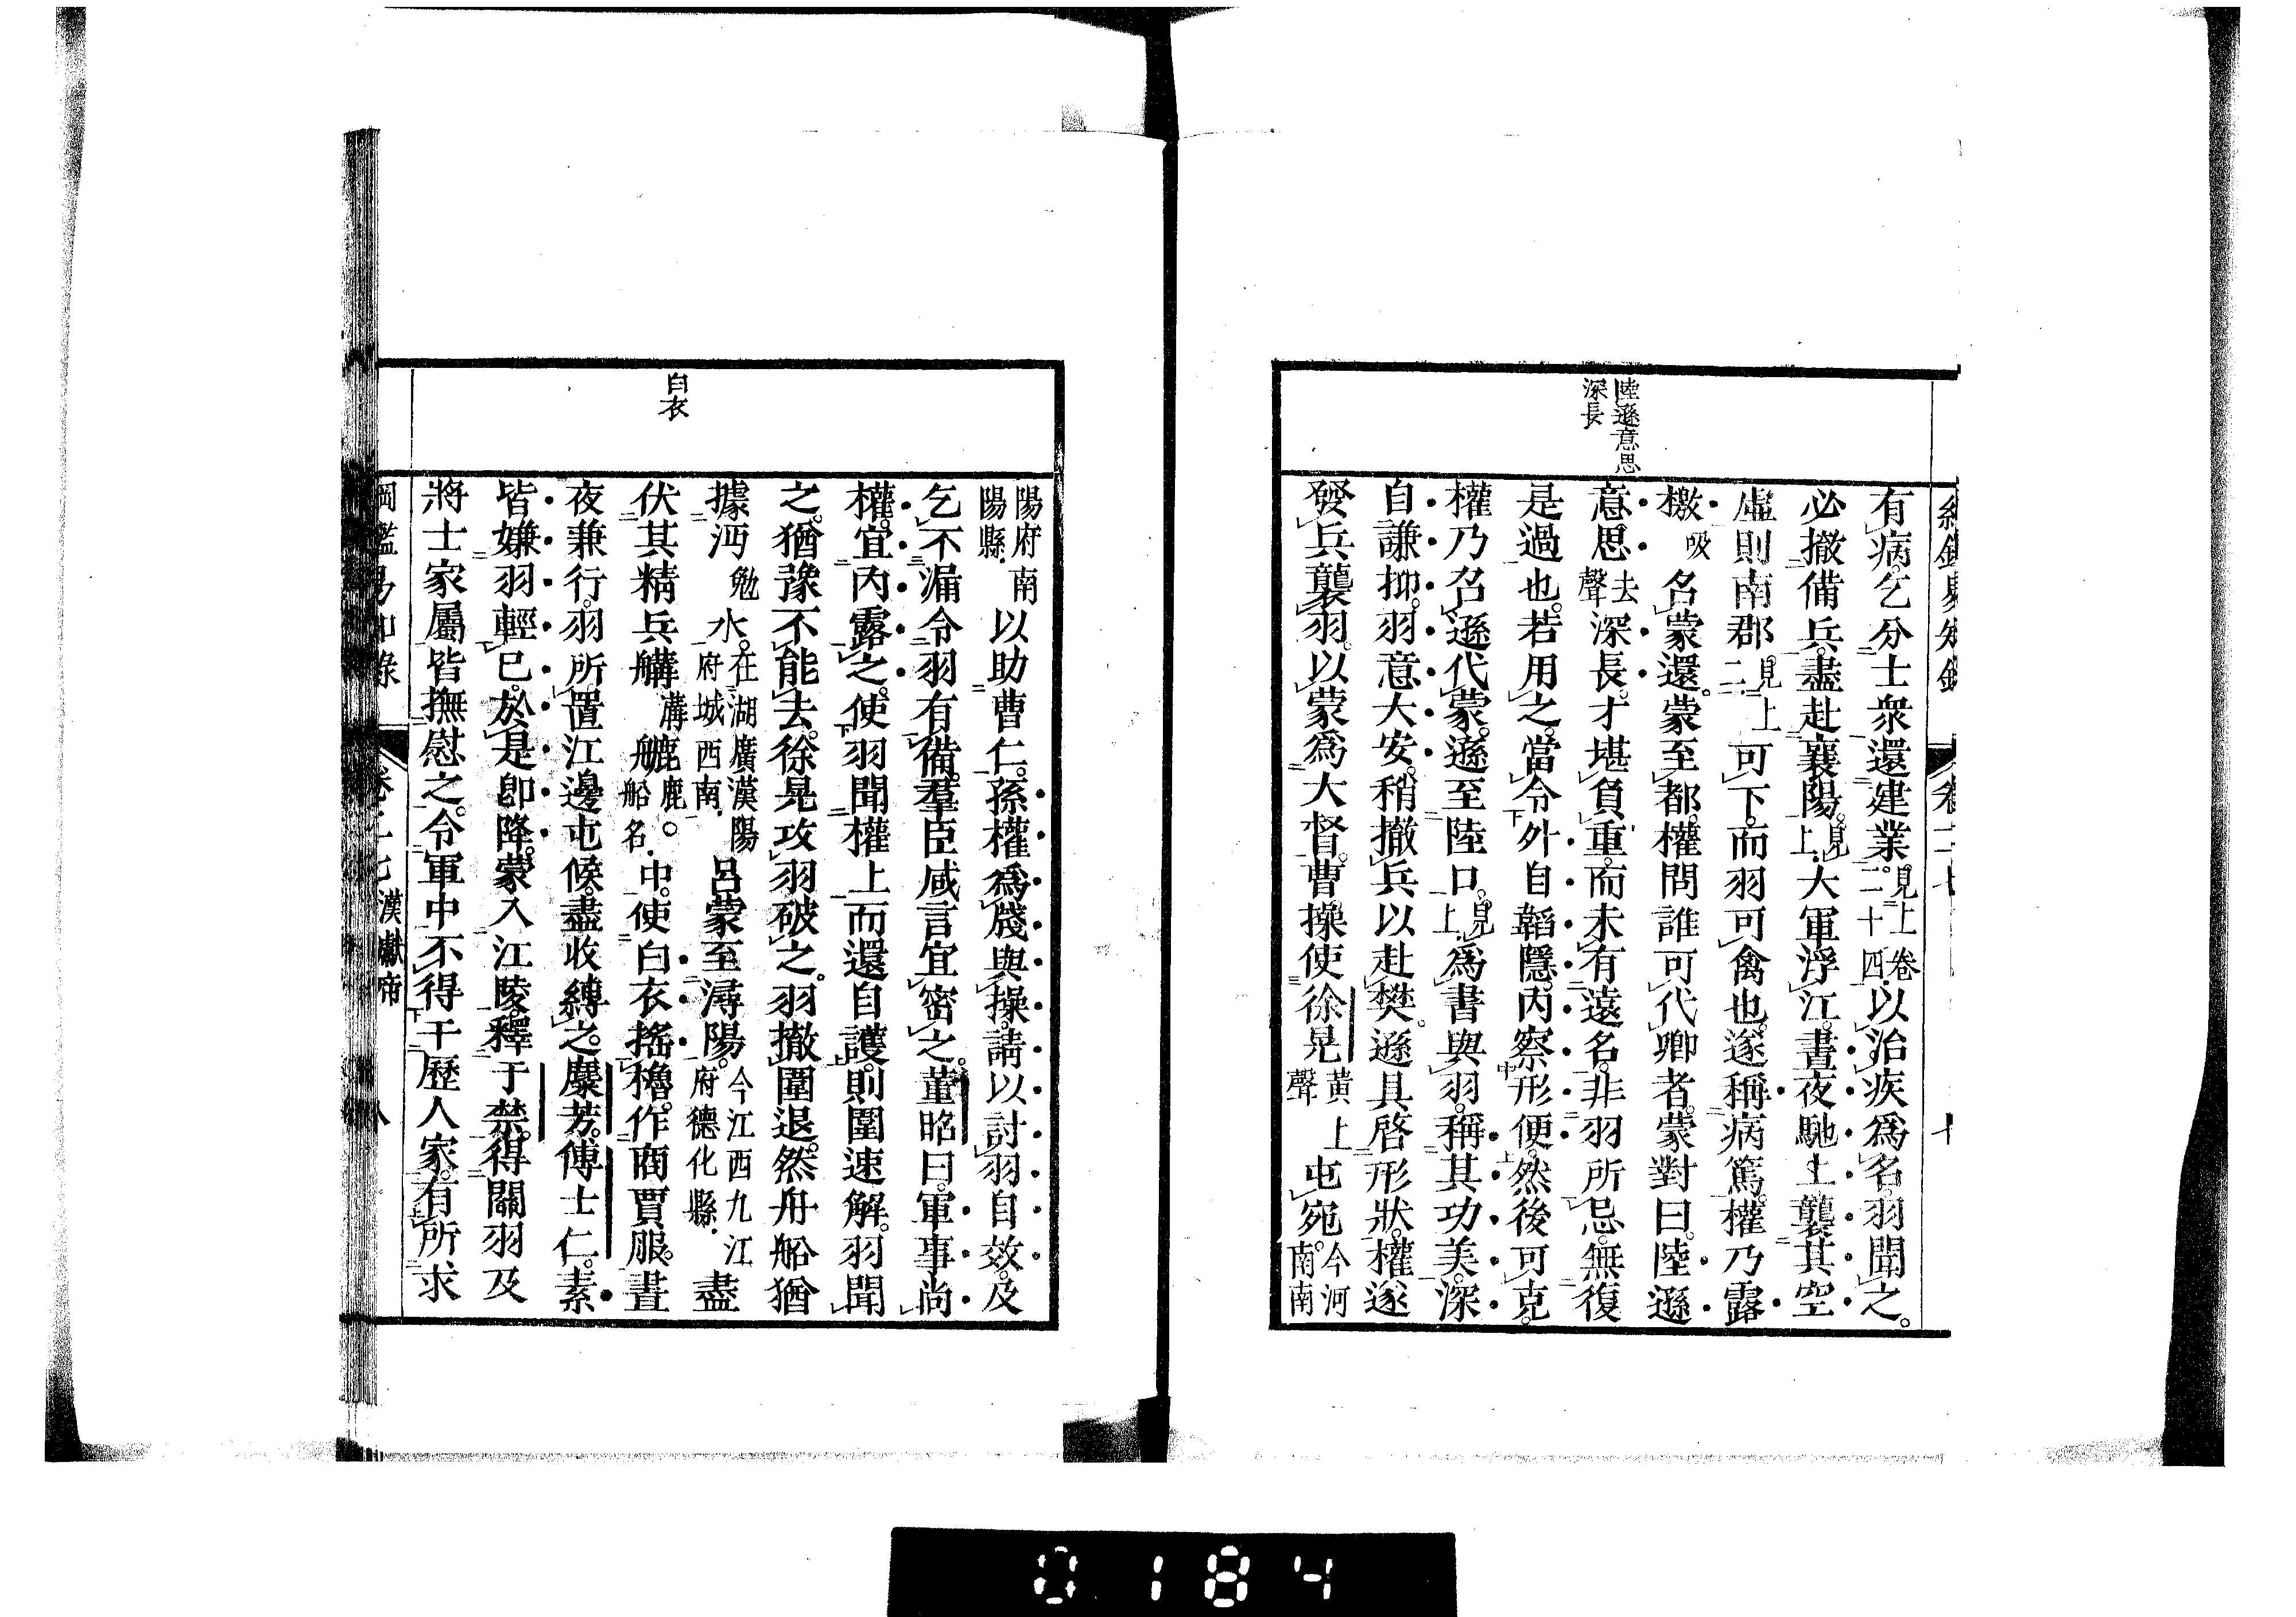 陸遜意思
深長
有病乞分士衆還建業見上卷二十四以治疾爲名羽聞之
必撤備兵盡赴襄陽見上大軍浮江晝夜馳上襲其空
虛則南郡見上二可下而羽可禽也遂稱病篤權乃露
檄吸名蒙還蒙至都權問誰可代卿者蒙對曰陸遜
意思去聲深長才堪負重而未有遠名非羽所忌無復
是過也若用之當令外自韜隱內察形便然後可克
權乃召遜代蒙遜至陸口見上爲書與羽稱其功美深
自謙抑羽意大安稍撤兵以赴樊遜具啓形狀權遂
發兵襲羽以蒙爲大督曹操使徐晃黃上聲屯宛今河南南
白衣
陽府南陽縣以助曹仁孫權爲牋與操請以討羽自效及
乞不漏令羽有備羣臣咸言宜密之董昭曰軍事尚
權宜內露之使羽聞權上而還自護則圍速解羽聞
之猶豫不能去徐晃攻羽破之羽撤圍退然舟船猶
據沔勉水在湖廣漢陽府城西南呂蒙至潯陽今江西九江府德化縣盡
伏其精兵𦪇溝䑽鹿鹿船名中使白衣搖櫓作商賈服晝
夜兼行羽所置江邊屯候盡收縛之麋芳傅士仁素
皆嫌羽輕己於是卽降蒙入江陵釋于禁得關羽及
將士家屬皆撫慰之令軍中不得干歷人家有所求
綱鑑易知錄 卷二七 漢獻帝 八
0184